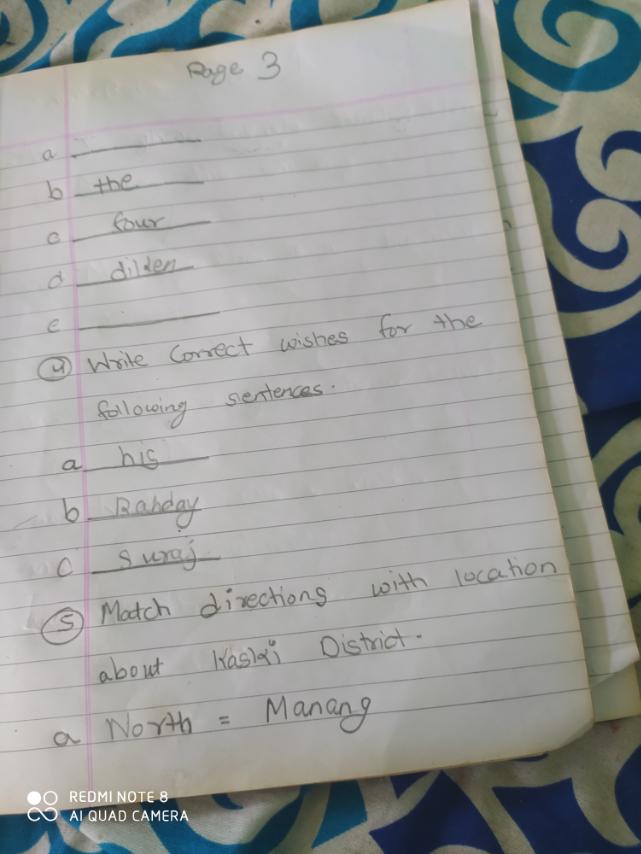 Page 3
a
b the
c four
d dilden
e
4 Write Correct wishes for the
following sentences.
a his
b
c Suraj
5 Match directions with location
about Kaski District.
a North = Manang
REDMI NOTE 8
AI QUAD CAMERA